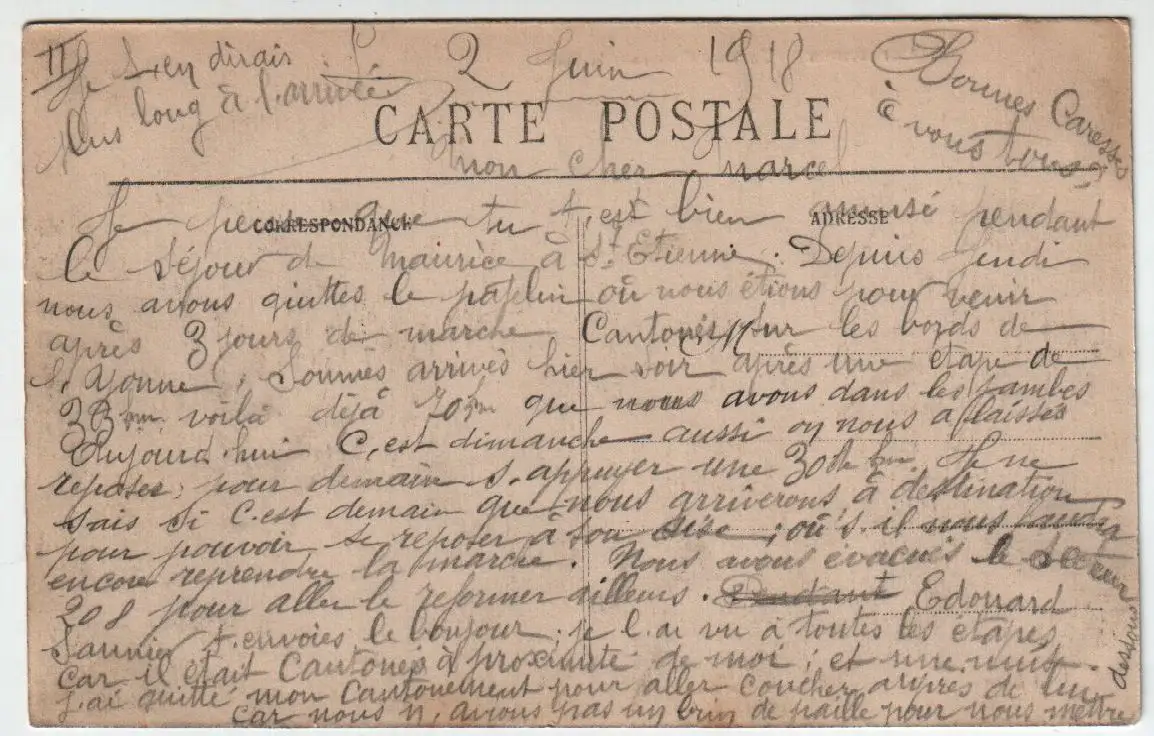 11
2 Juin 1918
Je t'en dirais
plus long à l'arrivée
Bonnes Caresses
à vous tous
CARTE POSTALE
mon cher marcel
CORRESPONDANCE
ADRESSE
Je pense que tu t,est bien amusé pendant
le séjour de Maurice à St Etienne. Depuis Jeudi
nous avons quittes le patelin où nous étions pour venir
après 3 jours de marche Cantonés sur les bords de
l'Yonne, Sommes arrivés hier soir après une étape de
km voilà déjà 70 km que nous avons dans les jambes
Aujourd.hui C,est dimanche aussi on nous a laissés
reposés, pour demain s,appuyer une 30e km. Je ne
sais si C.est demain que nous arriverons à destination
pour pouvoir se reposer à son aise, où s.il nous faudra
encore reprendre la marche. Nous avons évacués le secteur
208 pour aller le reformer ailleurs. Edouard
Saunier t.envoies le bonjour, je l.ai vu à toutes les étapes,
Car il était Cantonés à proximité de moi, et une nuit
j.ai quitté mon Cantonement pour aller coucher auprès de lui
car nous n,avons pas un brin de paille pour nous mettre
dessous